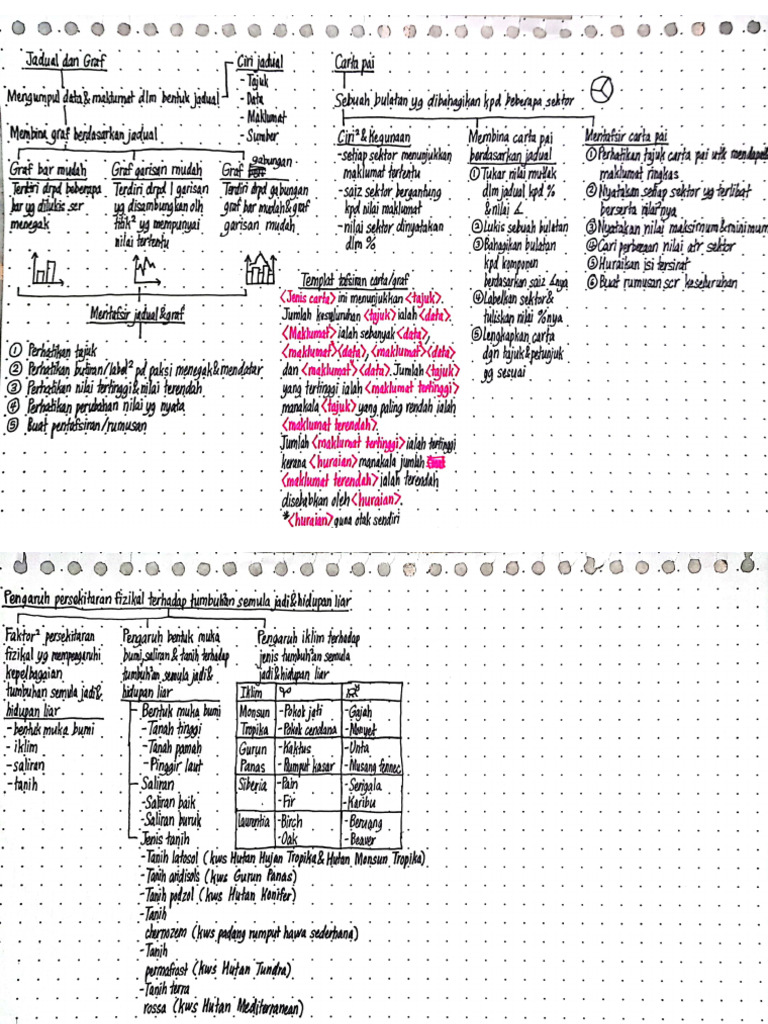 Jadual dan Graf
Mengumpul data & maklumat dlm bentuk jadual
Membina graf berdasarkan jadual
Graf bar mudah
Terdiri drpd beberapa
bar yg dilukis ser
menegak
Graf garisan mudah
Terdiri drpd 1 garisan
yg disambungkan olh
titik² yg mempunyai
nilai tertentu
Graf gabungan
Terdiri drpd gabungan
graf bar mudah & graf
garisan mudah
Mentafsir jadual & graf
① Perhatikan tajuk
② Perhatikan butiran/label² pd paksi menegak & mendatar
③ Perhatikan nilai tertinggi & nilai terendah
④ Perhatikan perubahan nilai yg nyata
⑤ Buat pentafsiran/rumusan
Ciri jadual
- Tajuk
- Data
- Maklumat
- Sumber
Carta pai
Sebuah bulatan yg dibahagikan kpd beberapa sektor
Ciri² & Kegunaan
- setiap sektor menunjukkan
maklumat tertentu
- saiz sektor bergantung
kpd nilai maklumat
- nilai sektor dinyatakan
dlm %
Membina carta pai
berdasarkan jadual
① Tukar nilai mutlak
dlm jadual kpd %
& nilai ∠
② Lukis sebuah bulatan
③ Bahagikan bulatan
kpd komponen
berdasarkan saiz ∠nya
④ Labelkan sektor &
tuliskan nilai %nya
⑤ Lengkapkan carta
dgn tajuk & petunjuk
yg sesuai
Mentafsir carta pai
① Perhatikan tajuk carta pai utk mendapat
maklumat ringkas
② Nyatakan setiap sektor yg terlibat
berserta nilai²nya
③ Nyatakan nilai maksimum & minimum
④ Cari perbezaan nilai atr sektor
⑤ Huraikan isi tersirat
⑥ Buat rumusan scr keseluruhan
Templat tafsiran carta/graf
<Jenis carta> ini menunjukkan <tajuk>.
Jumlah keseluruhan <tajuk> ialah <data>.
<Maklumat> ialah sebanyak <data>,
<maklumat> <data>, <maklumat> <data>
dan <maklumat> <data>. Jumlah <tajuk>
yang tertinggi ialah <maklumat tertinggi>
manakala <tajuk> yang paling rendah ialah
<maklumat terendah>.
Jumlah <maklumat tertinggi> ialah tertinggi
kerana <huraian> manakala jumlah
<maklumat terendah> ialah terendah
disebabkan oleh <huraian>.
*<huraian> guna otak sendiri
Pengaruh persekitaran fizikal terhadap tumbuhan semula jadi & hidupan liar
Faktor² persekitaran
fizikal yg mempengaruhi
kepelbagaian
tumbuhan semula jadi &
hidupan liar
- bentuk muka bumi
- iklim
- saliran
- tanih
Pengaruh bentuk muka
bumi, saliran & tanih terhadap
tumbuhan semula jadi &
hidupan liar
- Bentuk muka bumi
- Tanah tinggi
- Tanah pamah
- Pinggir laut
- Saliran
- Saliran baik
- Saliran buruk
- Jenis tanih
- Tanih latosol (kws Hutan Hujan Tropika & Hutan Monsun Tropika)
- Tanih aridisols (kws Gurun Panas)
- Tanih podzol (kws Hutan Konifer)
- Tanih
chernozem (kws padang rumput hawa sederhana)
- Tanih
permafrost (kws Hutan Tundra)
- Tanih terra
rossa (kws Hutan Mediterranean)
Pengaruh iklim terhadap
jenis tumbuhan semula
jadi & hidupan liar
Iklim
Monsun - Pokok jati - Gajah
Tropika - Pokok cendana - Monyet
Gurun - Kaktus - Unta
Panas - Rumput kasar - Musang fennec
Siberia - Pain - Serigala
- Fir - Karibu
Laurentia - Birch - Beruang
- Oak - Beaver